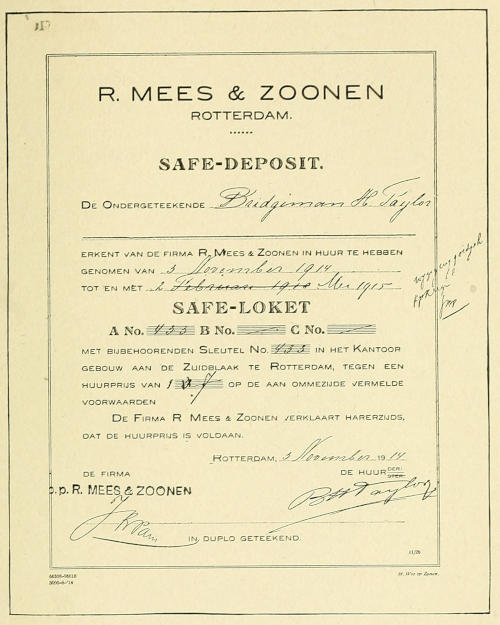 R. MEES & ZOONEN
ROTTERDAM.
SAFE-DEPOSIT.
DE ONDERGETEEKENDE Bridgiman H. Taylor
ERKENT VAN DE FIRMA R. MEES & ZOONEN IN HUUR TE HEBBEN
GENOMEN VAN 3 November 1914
TOT EN MET 2 Februari 1910 Mei 1915
SAFE-LOKET
A No. 433 B No. C No.
MET BIJBEHOORENDEN SLEUTEL No. 433 IN HET KANTOOR
GEBOUW AAN DE ZUIDBLAAK TE ROTTERDAM, TEGEN EEN
HUURPRIJS VAN 7 OP DE AAN OMMEZIJDE VERMELDE
VOORWAARDEN
DE FIRMA R MEES & ZOONEN VERKLAART HARERZIJDS,
DAT DE HUURPRIJS IS VOLDAAN.
ROTTERDAM, 3 November 1914
DE FIRMA DE HUURDER:
p.p. R. MEES & ZOONEN
BH Taylor
IN DUPLO GETEEKEND.
11/26
M. Wyt en Zonen.